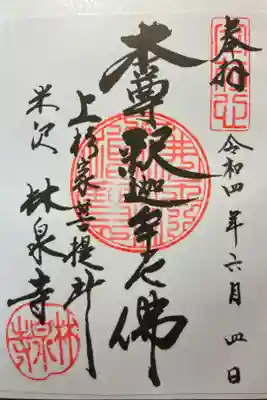 奉拝
令和四年六月四日
本尊釈迦牟尼佛
上杉家菩提所
米沢 林泉寺